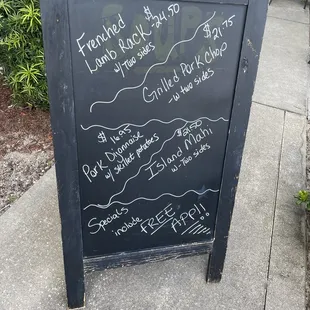 Frenched $24.50
Lamb Rack
w/Two sides
$21.75
Grilled Pork Chop
w- two sides
$16.95
Pork Dijonnaise
w/ skillet potatoes
$21.50
Island Mahi
w- Two sides
Specials
include FREE
APP!!